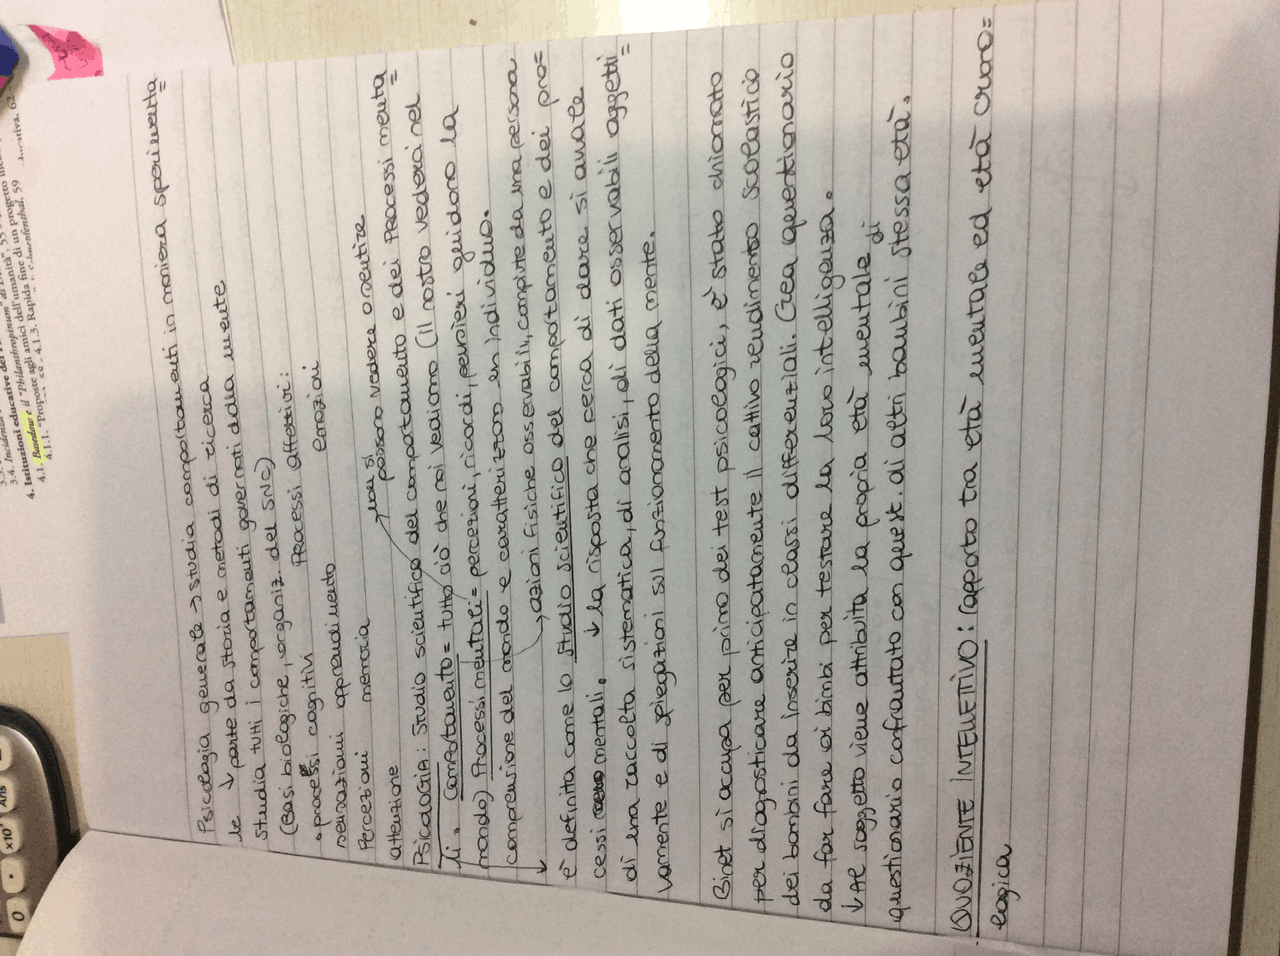 Psicologia generale → studia comportamenti in maniera sperimenta=
le ↓ parte da storia e metodi di ricerca
Studia tutti i comportamenti governati dalla mente
(Basi biologiche, organiz del SNC)
• processi cognitivi Processi affettivi:
sensazioni apprendimento emozioni
Percezioni memoria non si possono vedere o sentire
attenzione
PSICOLOGIA: Studio scientifico del comportamento e dei Processi menta=
li. Comportamento = tutto ciò che noi vediamo (il nostro vederci nel
mondo) Processi mentali = percezioni, ricordi, pensieri guidono la
comprensione del mondo e caratterizzano un individuo.
↓ → azioni fisiche osservabili, compiute da una persona
è definita come lo studio scientifico del comportamento e dei pro=
cessi mentali. ↓ la risposta che cerca di dare si avvale
di una raccolta sistematica, di analisi, di dati osservabili oggetti=
vamente e di spiegazioni sul funzionamento della mente.
Binet si occupa per primo dei test psicologici, è stato chiamato
per diagnosticare anticipatamente il cattivo rendimento scolastico
dei bambini da inserire in classi differenziali. Crea questionario
da far fare ai bimbi per testare la loro intelligenza.
↓ Al soggetto viene attribuita la propria età mentale di
questionario confrontato con quest. di altri bambini stessa età.
QUOZIENTE INTELLETTIVO: rapporto tra età mentale ed età crono=
logica
3.4. Incidenza
4. Istituzioni educative dei
4.1. Basedow e il "Philanthropinum"
4.1.1. "Proposte agli amici dell'umanità", 55
4.1.3. Rapida fine di un progetto
0
•
x10
Ans